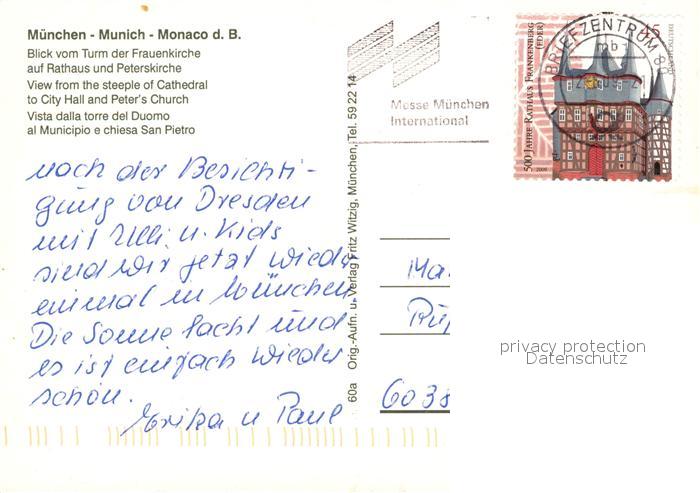 München - Munich - Monaco d. B.
Blick vom Turm der Frauenkirche
auf Rathaus und Peterskirche
View from the steeple of Cathedral
to City Hall and Peter's Church
Vista dalla torre del Duomo
al Municipio e chiesa San Pietro
nach der Besichti-
gung von Dresden
mit Ulli u. Kids
sind wir jetzt wieder
einmal in München
Die Sonne lacht und
es ist einfach wieder
schön.
Erika u Paul
60a Orig.-Aufn. u. Verlag Fritz Witzig, München, Tel. 59 22 14
Messe München
International
500 JAHRE RATHAUS FRANKENBERG
(EDER)
45
BRIEFZENTRUM 8
mb
Ma
Rüp
6038
privacy protection
Datenschutz